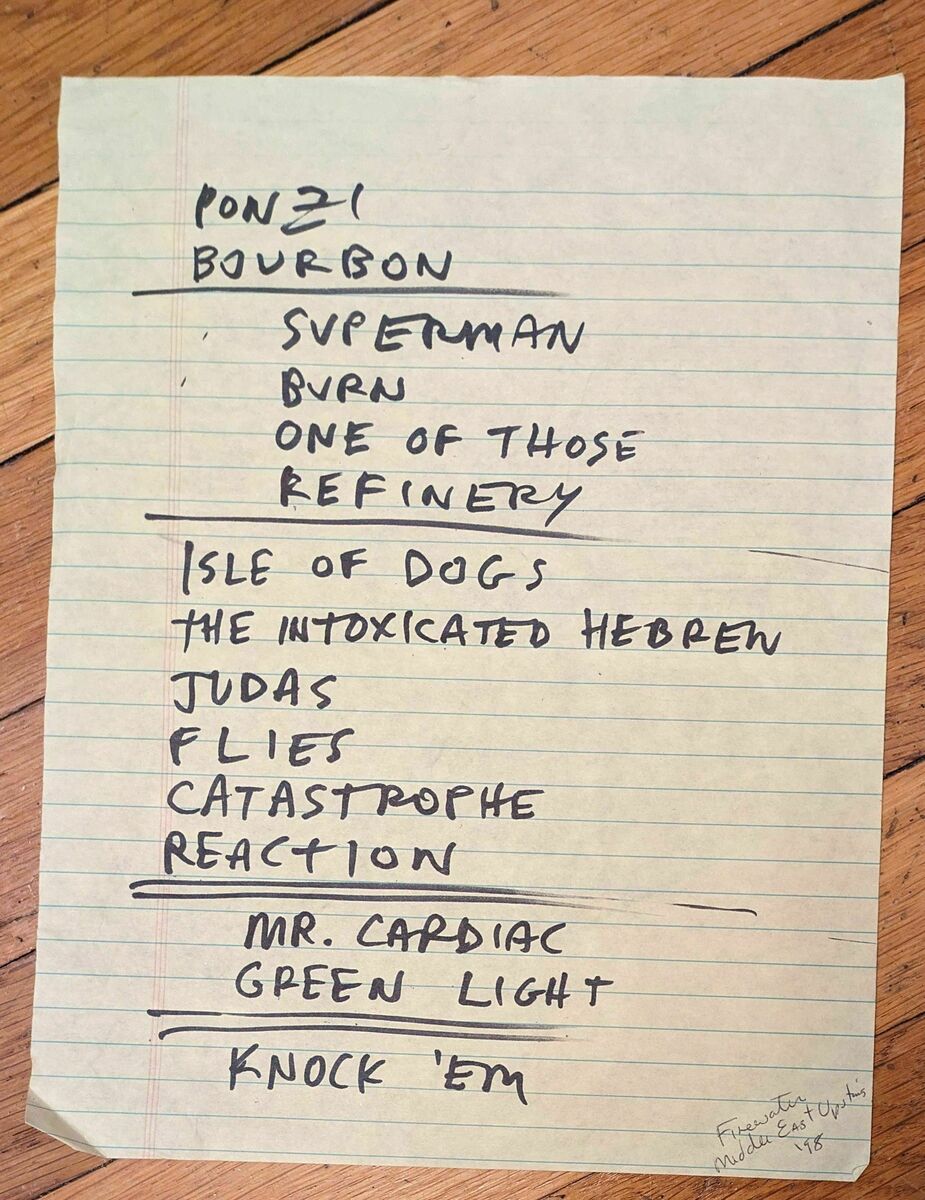 PONZI
BOURBON
SUPERMAN
BURN
ONE OF THOSE
REFINERY
ISLE OF DOGS
THE INTOXICATED HEBREW
JUDAS
FLIES
CATASTROPHE
REACTION
MR. CARDIAC
GREEN LIGHT
KNOCK 'EM
Firewater
Middle East Upstairs
'98